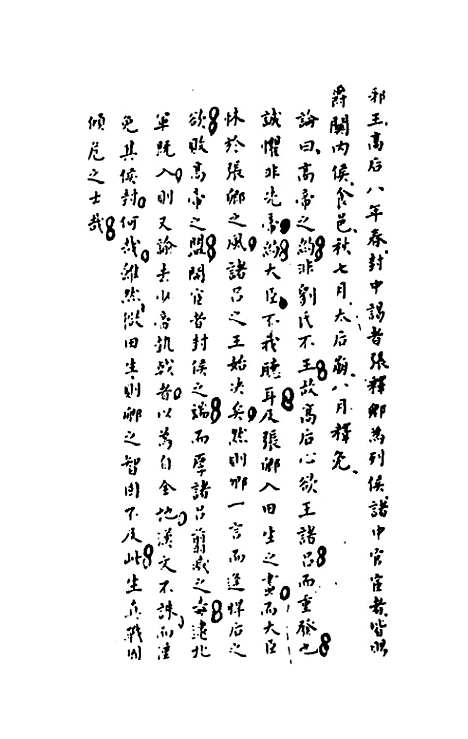 邪王高后八年春封中謁者張釋卿為列侯諸中官宦者皆賜
爵關內侯食邑秋七月太后崩八月釋免
論曰高帝之約非劉氏不王故高后心欲王諸呂而重發也
誠懼非先帝約大臣不我聽耳及張卿入田生之畫而大臣
休於張卿之風諸呂之王始決矣然則卿一言而逢悍后之
欲敗高帝之盟開宦者封侯之端而厚諸呂翦滅之毒逮北
軍既入則又諭去少帝執戟者以為自全地漢文不誅而僅
免其侯封何哉雖然微田生則卿之智固不及此生真戰國
傾危之士哉